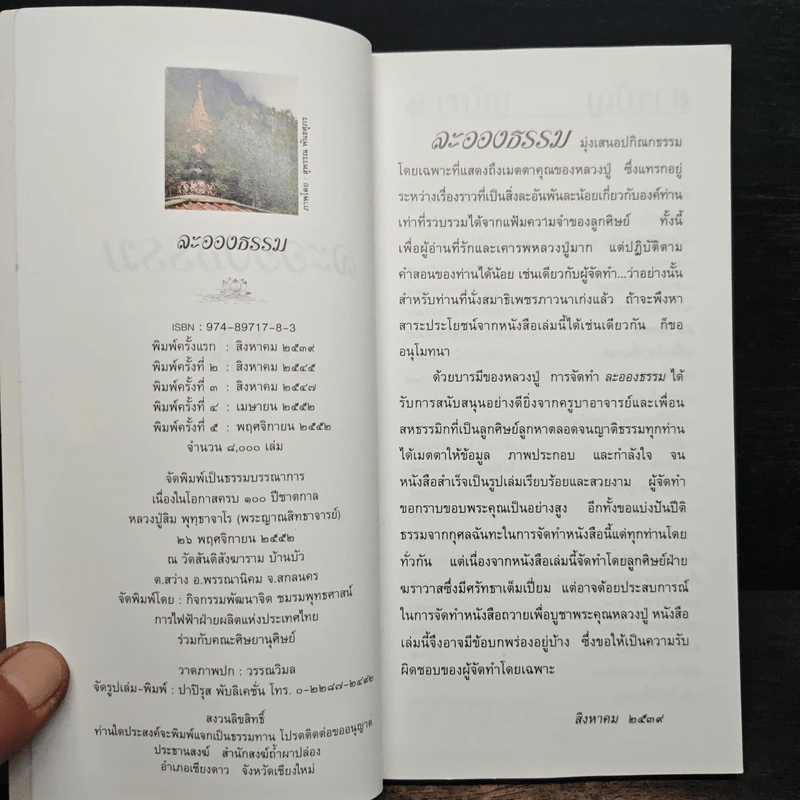 ภาพโดย : สุพรรณ พันธศุภร
ละอองธรรม
ISBN : 974-89717-8-3
พิมพ์ครั้งแรก : สิงหาคม ๒๕๓๙
พิมพ์ครั้งที่ ๒ : สิงหาคม ๒๕๔๕
พิมพ์ครั้งที่ ๓ : สิงหาคม ๒๕๔๗
พิมพ์ครั้งที่ ๔ : เมษายน ๒๕๕๒
พิมพ์ครั้งที่ ๕ : พฤศจิกายน ๒๕๕๒
จำนวน ๘,๐๐๐ เล่ม
จัดพิมพ์เป็นธรรมบรรณาการ
เนื่องในโอกาสครบ ๑๐๐ ปีชาตกาล
หลวงปู่สิม พุทฺธาจาโร (พระญาณสิทธาจารย์)
๒๖ พฤศจิกายน ๒๕๕๒
ณ วัดสันติสังฆาราม บ้านบัว
ต.สว่าง อ.พรรณานิคม จ.สกลนคร
จัดพิมพ์โดย : กิจกรรมพัฒนาจิต ชมรมพุทธศาสน์
การไฟฟ้าฝ่ายผลิตแห่งประเทศไทย
ร่วมกับคณะศิษยานุศิษย์
วาดภาพปก : วรรณวิมล
จัดรูปเล่ม-พิมพ์ : ปาปิรุส พับลิเคชั่น โทร. ๐-๒๒๘๗-๒๔๙๒
สงวนลิขสิทธิ์
ท่านใดประสงค์จะพิมพ์แจกเป็นธรรมทาน โปรดติดต่อขออนุญาต
ประธานสงฆ์ สำนักสงฆ์ถ้ำผาปล่อง
อำเภอเชียงดาว จังหวัดเชียงใหม่
ละอองธรรม มุ่งเสนอปกิณกธรรม
โดยเฉพาะที่แสดงถึงเมตตาคุณของหลวงปู่ ซึ่งแทรกอยู่
ระหว่างเรื่องราวที่เป็นสิ่งละอันพันละน้อยเกี่ยวกับองค์ท่าน
เท่าที่รวบรวมได้จากแฟ้มความจำของลูกศิษย์ ทั้งนี้
เพื่อผู้อ่านที่รักและเคารพหลวงปู่มาก แต่ปฏิบัติตาม
คำสอนของท่านได้น้อย เช่นเดียวกับผู้จัดทำ...ว่าอย่างนั้น
สำหรับท่านที่นั่งสมาธิเพชรภาวนาเก่งแล้ว ถ้าจะพึงหา
สาระประโยชน์จากหนังสือเล่มนี้ได้เช่นเดียวกัน ก็ขอ
อนุโมทนา
ด้วยบารมีของหลวงปู่ การจัดทำ ละอองธรรม ได้
รับการสนับสนุนอย่างดียิ่งจากครูบาอาจารย์และเพื่อน
สหธรรมิกที่เป็นลูกศิษย์ลูกหาตลอดจนญาติธรรมทุกท่าน
ได้เมตตาให้ข้อมูล ภาพประกอบ และกำลังใจ จน
หนังสือสำเร็จเป็นรูปเล่มเรียบร้อยและสวยงาม ผู้จัดทำ
ขอกราบขอบพระคุณเป็นอย่างสูง อีกทั้งขอแบ่งปันปีติ
ธรรมจากกุศลฉันทะในการจัดทำหนังสือนี้แด่ทุกท่านโดย
ทั่วกัน แต่เนื่องจากหนังสือเล่มนี้จัดทำโดยลูกศิษย์ฝ่าย
ฆราวาสซึ่งมีศรัทธาเต็มเปี่ยม แต่อาจด้อยประสบการณ์
ในการจัดทำหนังสือถวายเพื่อบูชาพระคุณหลวงปู่ หนังสือ
เล่มนี้จึงอาจมีข้อบกพร่องอยู่บ้าง ซึ่งขอให้เป็นความรับ
ผิดชอบของผู้จัดทำโดยเฉพาะ
สิงหาคม ๒๕๓๙